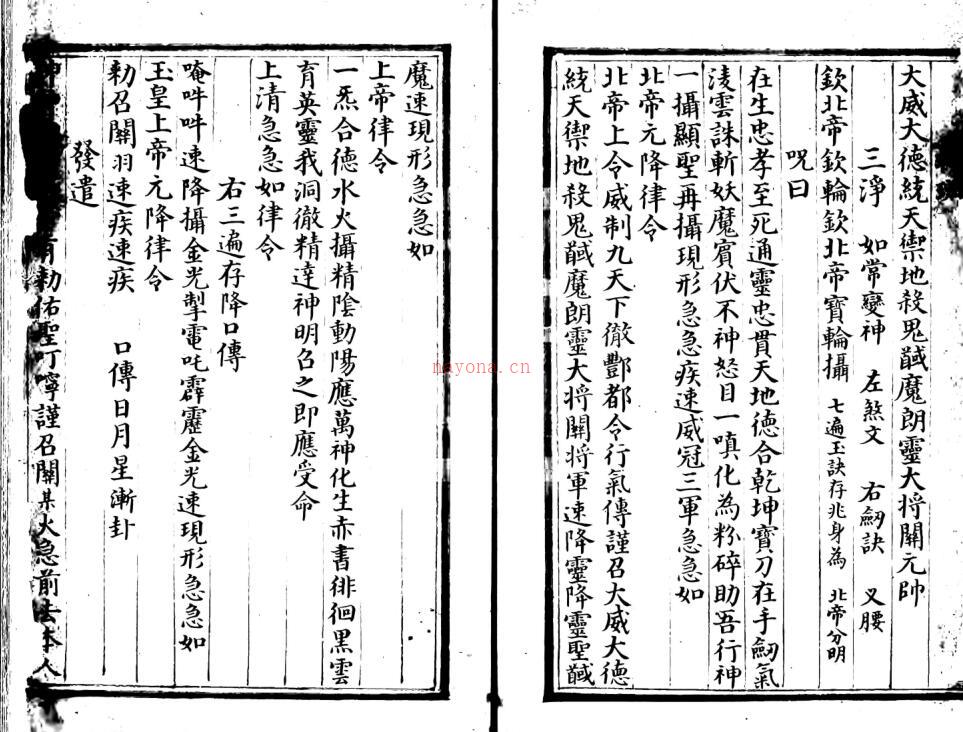 大威大德統天禦地殺鬼馘魔朗靈大将關元帥
三淨　如常變神　左煞文　右劒訣　叉腰
欽北帝欽輪欽北帝寶輪攝　七遍玉訣存兆身為　北帝分明
咒曰
在生忠孝至死通靈忠貫天地德合乾坤寶刀在手劒氣
淩雲誅斬妖魔賓伏不神怒目一嗔化為粉碎助吾行神
一攝顯聖再攝現形急急疾速威冠三軍急急如
北帝元降律令
北帝上令威制九天下徹酆都令行氣傳謹召大威大德
統天禦地殺鬼馘魔朗靈大将關将軍速降靈降靈聖馘
魔速現形急急如
上帝律令
一炁合德水火攝精陰動陽應萬神化生赤書徘徊黑雲
育英靈我洞徹精達神明召之即應受命
上清急急如律令
右三遍存降口傳
唵吽吽速降攝金光掣電吒霹靂金光速現形急急如
玉皇上帝元降律令
勑召關羽速疾速疾　口傳日月星漸卦
發遣
有勑佑聖叮嚀謹召關某火急前去本人
nayona.cn